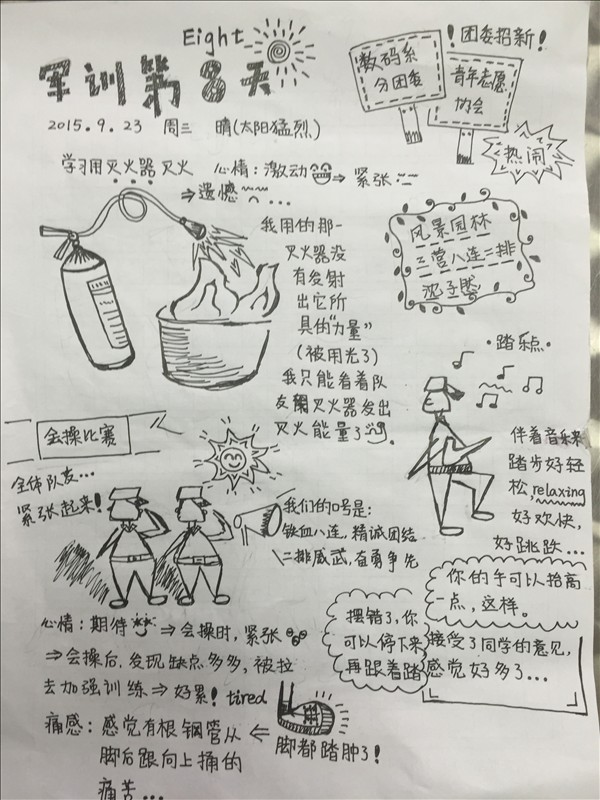 Eight
军训第8天
2015.9.23 周三 晴(太阳猛烈)
！团委招新！
数码系
分团委
青年志愿
协会
热闹
学习用灭火器灭火 心情：激动⇒紧张
⇒遗憾...
我用的那一
灭火器没
有发射
出它所
具的“力量”
(被用光了)
我只能看着队
友用灭火器发出
灭火能量了。
风景园林
三营八连二排
·踏乐点·
伴着音乐来
踏步好轻
松,relaxing
好欢快,
好跳跃...
会操比赛
全体队友...
紧张起来！
我们的口号是:
铁血八连,精诚团结
二排威武,奋勇争先
你的手可以抬高
一点,这样。
摆错了,你
可以停下来
再跟着踏
接受了同学的意见,
感觉好多了...
心情：期待⇒会操时,紧张
⇒会操后,发现缺点多多,被拉
去加强训练⇒好累！tired
痛感：感觉有根钢管从
脚后跟向上捅的
痛苦...
⇐
脚都踏肿了！